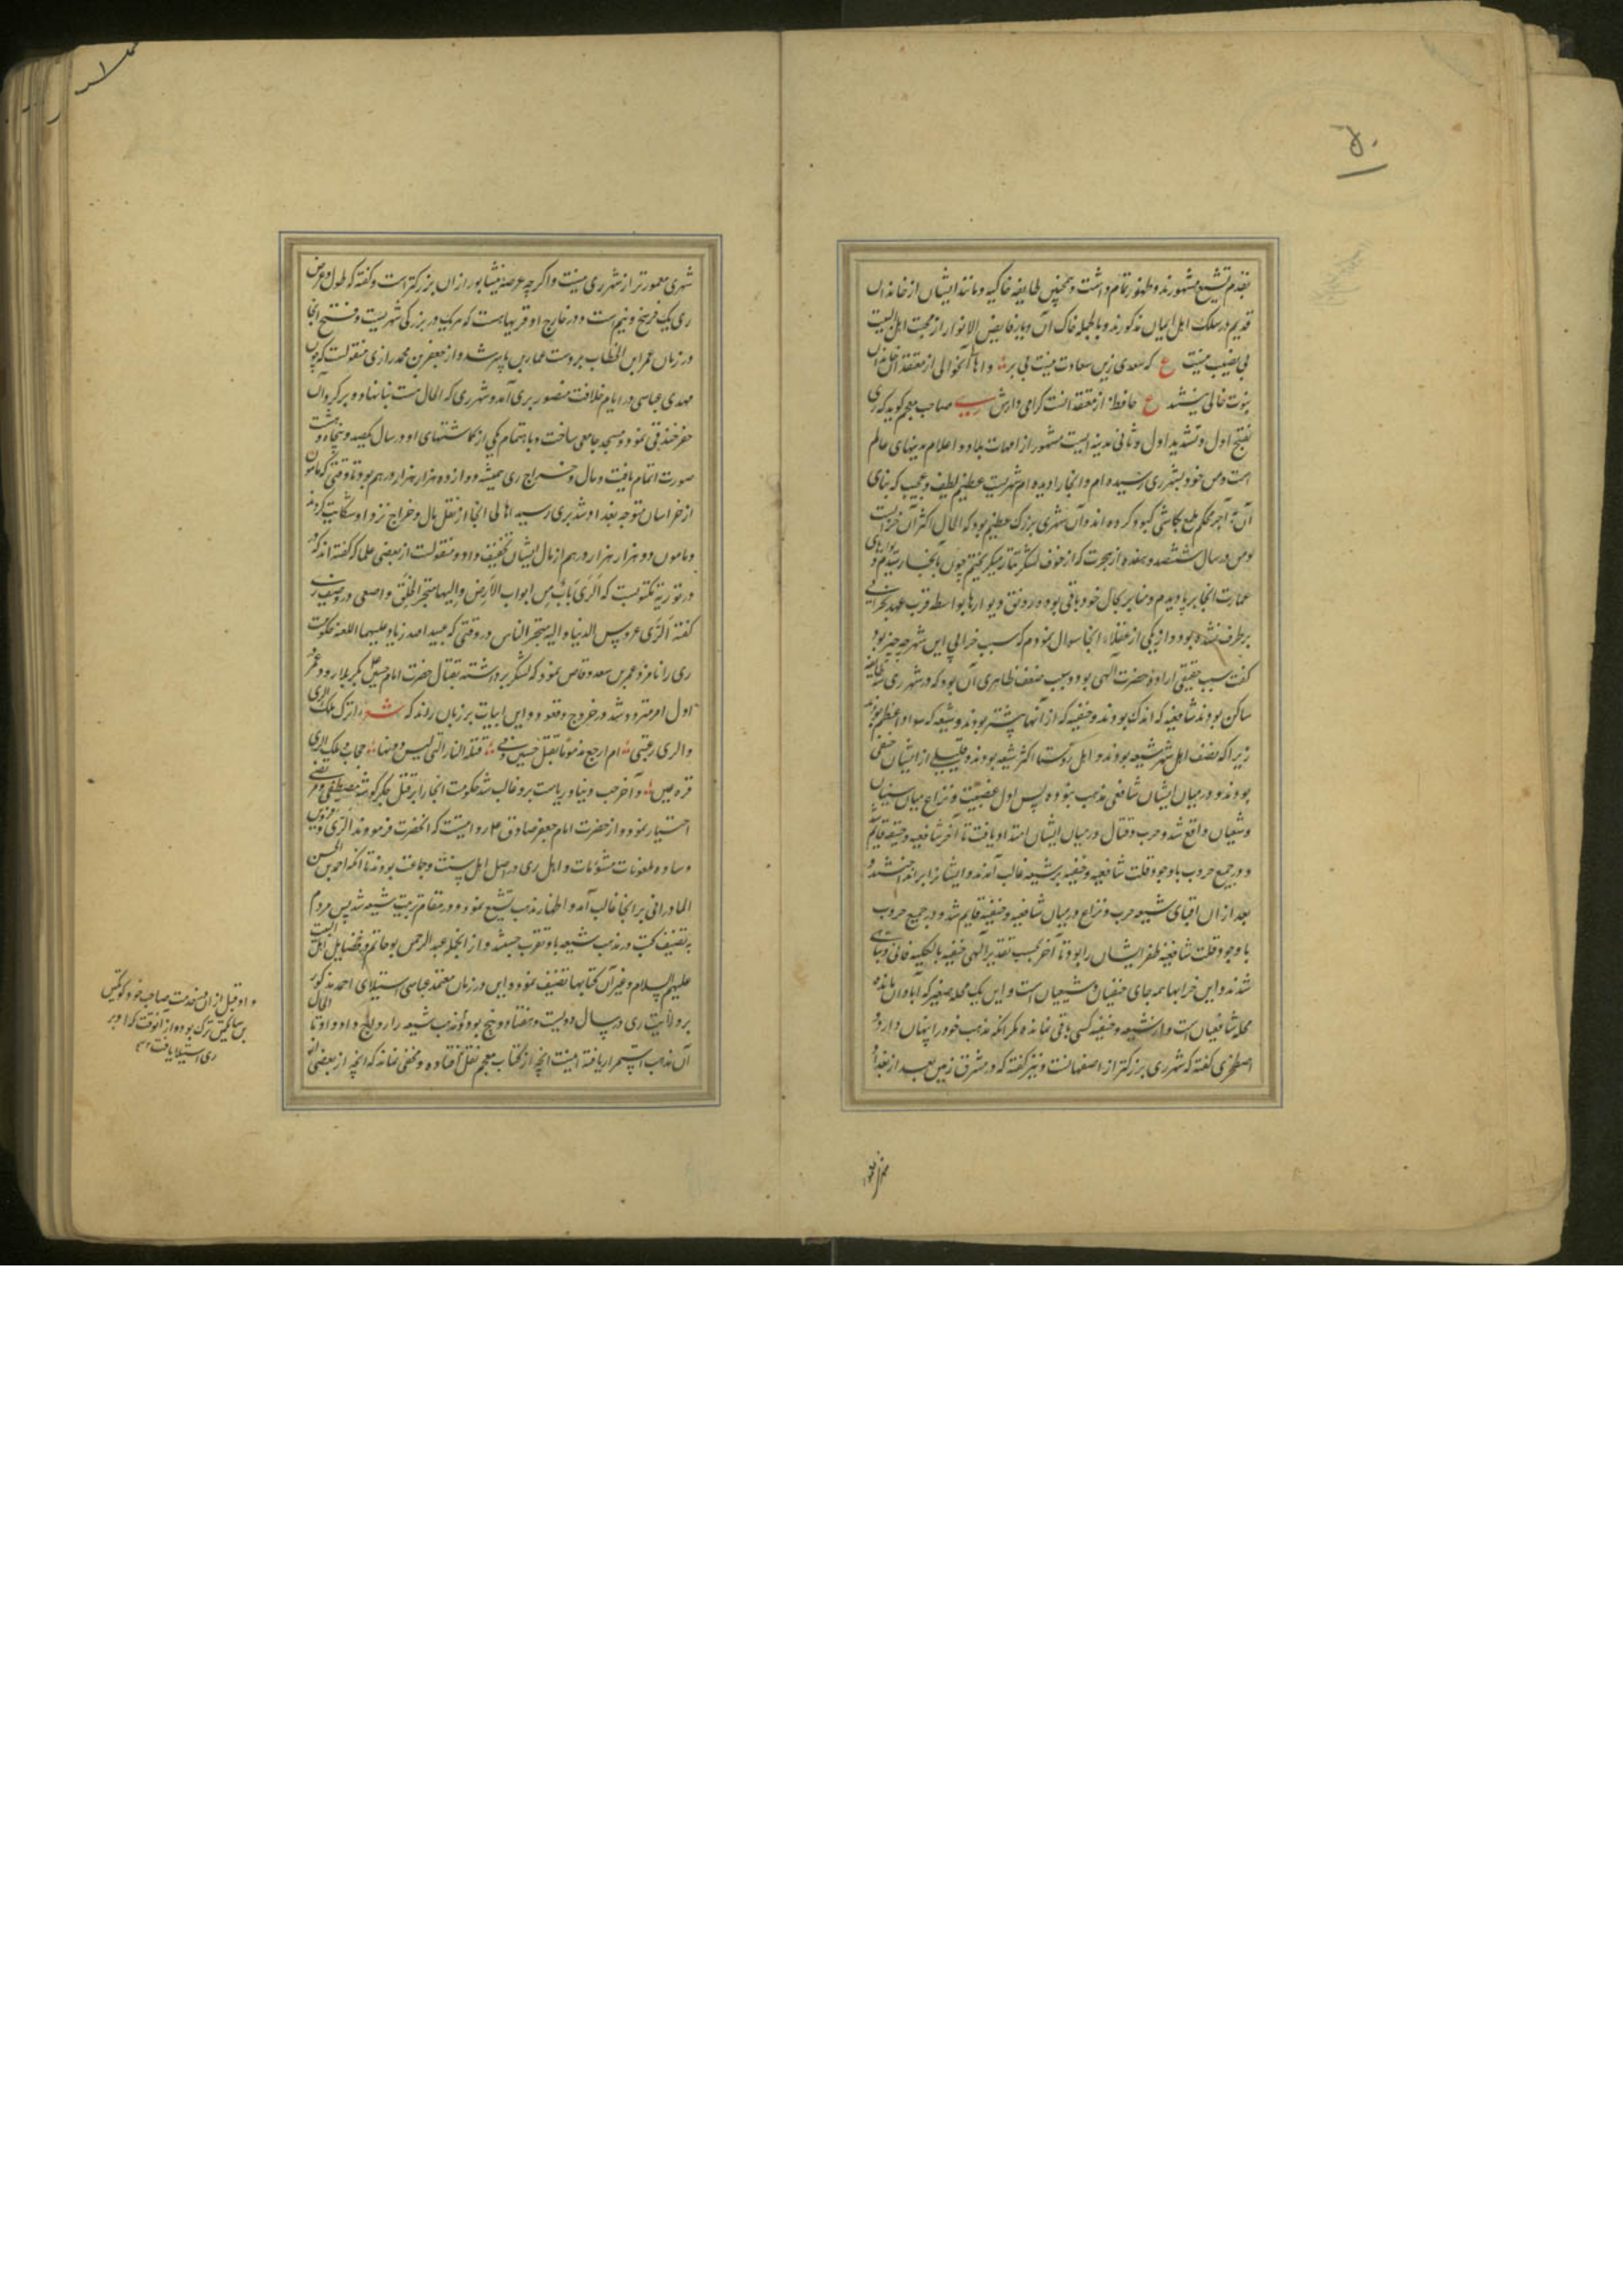 ۵۰
بقدم تشیع مشهورند و ظهور تمام داشت و همچنین طایفه خاکیه و مانند ایشان از خاندان
قدیم در سلک اهل ایمان مذکورند و بالجمله خاک آن دیار فایض الانوار از محبت اهل البیت
بی نصیب نیست ع که سعدی زین سعادت نیست بی بر و اهالی آنحوالی از معتقدان خاندان
نبوت خالی نیستند ع حافظ از معتقدانست گرامی دارش ری صاحب معجم گوید که ری
بفتح اول و تشدید اول و ثانی مدینه ایست مشهور از امهات بلاد و اعلام مدینهای عالم
است و من خود بشهر ری رسیده ام و آنجا را دیده ام شهریست عظیم لطیف و عجیب که بنای
آن به آجر محکم ملمع بکاشی کبود کرده اند و آن شهری بزرگ عظیم بود که الحال اکثر آن خرابست
و من در سال ششصد و هفده از هجرت که از خوف لشکر تتار میگریختم چون بآنجا رسیدم دیوارهای
عمارت آنجا بر پا دیدم و منابر بحال خود باقی بود و رونق دیوارها بواسطه قرب عهد بخرابی
برطرف نشده بود و از یکی از عقلاء آنجا سوال نمودم که سبب خرابی این شهر چه چیز بود
گفت سبب حقیقی اراده حضرت الهی بود و سبب ضعف ظاهری آن بود که در شهر ری سه طایفه
ساکن بودند شافعیه که اندک بودند و حنفیه که از آنها بیشتر بودند و شیعه که سواد اعظم بودند
زیرا که نصف اهل شهر شیعه بودند و اهل روستا اکثر شیعه بودند و قلیلی از ایشان حنفی
بودند و در میان ایشان شافعی مذهب نبوده پس اول عصبیت و نزاع میان سنیان
و شیعیان واقع شد و حرب و قتال در میان ایشان امتداد یافت تا آخر شافعیه و حنفیه قایم
و در جمیع حروب با وجود قلت شافعیه و حنفیه بر شیعه غالب آمدند و ایشان را برانداختند و
بعد از آن افنای شیعه حرب و نزاع در میان شافعیه و حنفیه قایم شد و در جمیع حروب
با وجود قلت شافعیه ظفر ایشان را بود تا آخر بحسب تقدیر الهی حنفیه بالکلیه فانی و تباه
شدند و این خرابها همه جای حنفیان و شیعیان است و این یک محله صغیر که آبادان مانده
محله شافعیان است و از شیعه و حنفیه کسی باقی نمانده مگر آنکه مذهب خود را پنهان دارد و
اصطخری گفته که شهر ری بزرگتر از اصفهانست و نیز گفته که در مشرق زمین بعد از بغداد
شهری معمورتر از شهر ری نیست و اگر چه عرصه نیشابور از آن بزرگتر است و گفته که طول و عرض
ری یک فرسخ و نیم است و در خارج او قریهاست که هر یک در بزرگی شهریست و فتح آنجا
در زمان عمر ابن الخطاب بر دست عمار بن یاسر شد و از جعفر بن محمد رازی منقولست که چون
مهدی عباسی در ایام خلافت منصور بری آمد و شهر ری که الحال هست بنا نهاد و بر گرد آن
حفر خندقی نمود و مسجد جامعی ساخت و باهتمام یکی از گماشتهای او در سال یکصد و پنجاه و هشت
صورت اتمام یافت و مال و خراج ری همیشه دوازده هزار هزار درهم بود تا وقتی که مامون
از خراسان متوجه بغداد شد بری رسید اهالی آنجا از ثقل مال و خراج نزد او شکایت کردند
و مامون دو هزار هزار درهم از مال ایشان تخفیف داد و منقولست از بعضی علما که گفته اند که در
در توریة مکتوبست که الری باب من ابواب الارض و الیها متجر الخلق و اصمعی در وصف ری
گفته الری عروس الدنیا و الیه متجر الناس در وقتی که عبید الله زیاد علیهما اللعنه حکومت
ری را نامزد عمر بن سعد وقاص نمود که لشکر برداشته بقتال حضرت امام حسین بکربلا رود و عمر
اول امر متردد شد در خروج و قعود و این ابیات بر زبان راند که شعر اترک ملک الری
والری رغبتی ام ارجع مذموما بقتل حسین و فی قتله النار التی لیس دونها حجاب و ملک الری
قرة عین و آخر حب دنیا و ریاست برو غالب شد حکومت آنجا را بر قتل جگر گوشه مصطفی و مرتضی
اختیار نمود و از حضرت امام جعفر صادق علیه روایتست که آنحضرت فرمودند الری و قزوین
و ساوه ملعونات مشئومات و اهل ری در اصل اهل سنت و جماعت بودند تا آنکه احمد بن الحسن
المادرانی بر آنجا غالب آمد و اظهار مذهب تشیع نمود و در مقام تربیت شیعه شد پس مردم
به تصنیف کتب در مذهب شیعه باو تقرب جستند و از آنجمله عبد الرحمن بوحاتم در فضایل اهل البیت
علیهم السلام و غیر آن کتابها تصنیف نمود و این در زمان معتمد عباسی استیلای احمد مذکور
بر ولایت ری در سال دویست و هفتاد و پنج بود و مذهب شیعه را رواج داد و او تا الحال
آن مذهب استمرار یافته اینست آنچه از کتاب معجم نقل افتاده و مخفی نماند که آنچه از بعضی از
و او قبل از آن در خدمت صاحب خود کوتکین
بن ساتکین ترک بوده و از آنوقت که او بر
ری استیلا یافت